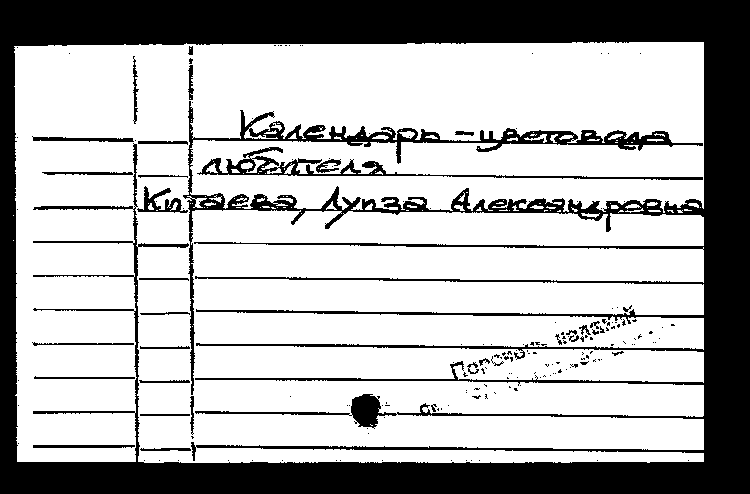 Календарь-цветовода
любителя
Китаева, Луиза Александровна
Перечень изданий
см.